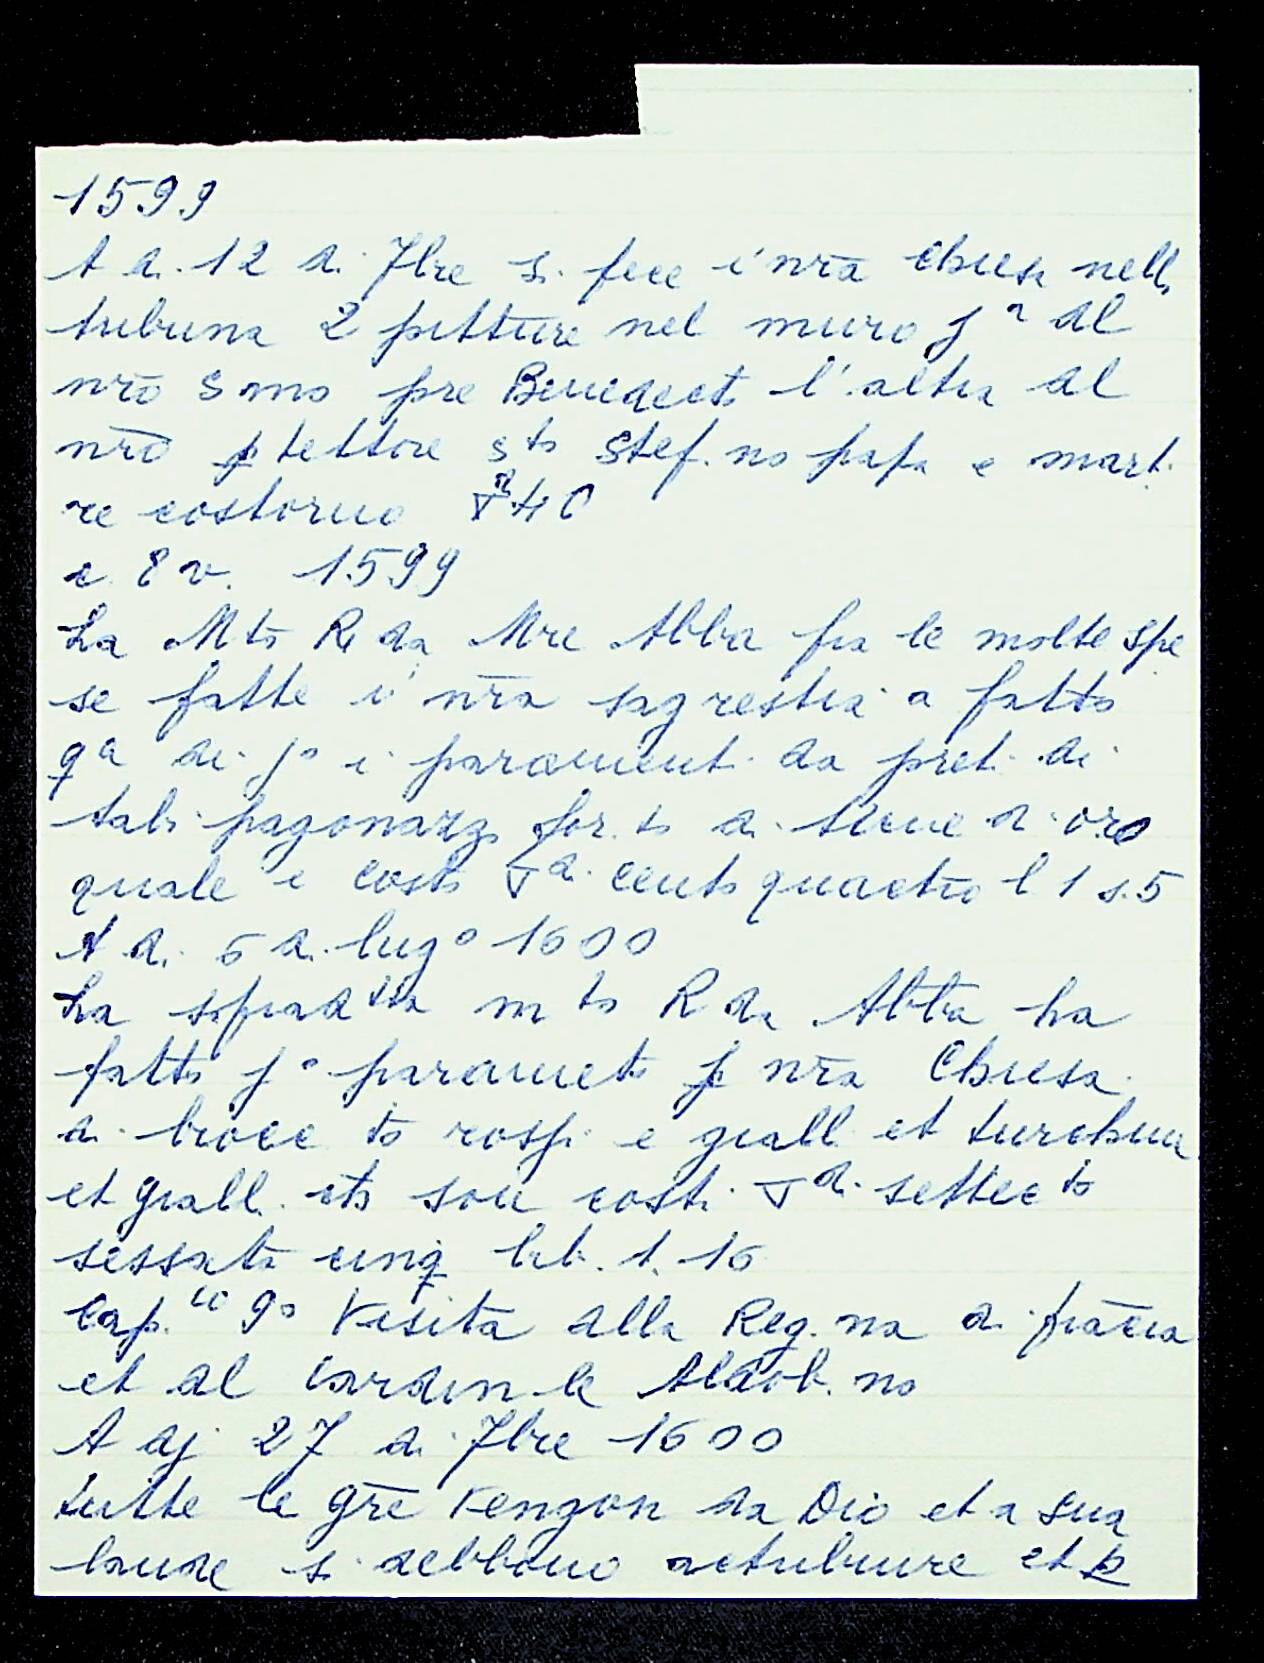 1599
A di 12 di 7bre si fece i nrā chiesa nella
tribuna 2 pitture nel muro jª al
nrō S mo pre Benedecto l'altra al
nrō ptettore sto Stef.no papa e marti
re costorno ▽di 40
c 8 v. 1599
La Mto Rda Mre Abba fra le molte spe
se fatte i nrā sagrestia a fatto
qª di jº i parament. da preti di
tabi pagonazzo for.to di trene d'oro
quale è costo ▽di cento quactro l 1 s. 5
A di 6 di lugº 1600
La sopradtta mto Rda Abba ha
fatto jº paramēto p nrā Chiesa
di brocc to rosso e giall et turchino
et giall. eto sono costi ▽di settecto
sessāta cinq lib. 1. 16
Cap.lo 9º Visita alla Reg.na di frācia
et al Cardin le Aldob.no
A dj 27 di 7bre 1600
tutte le gr̄e vengon da Dio et a sua
laude si debbono actribuire et p